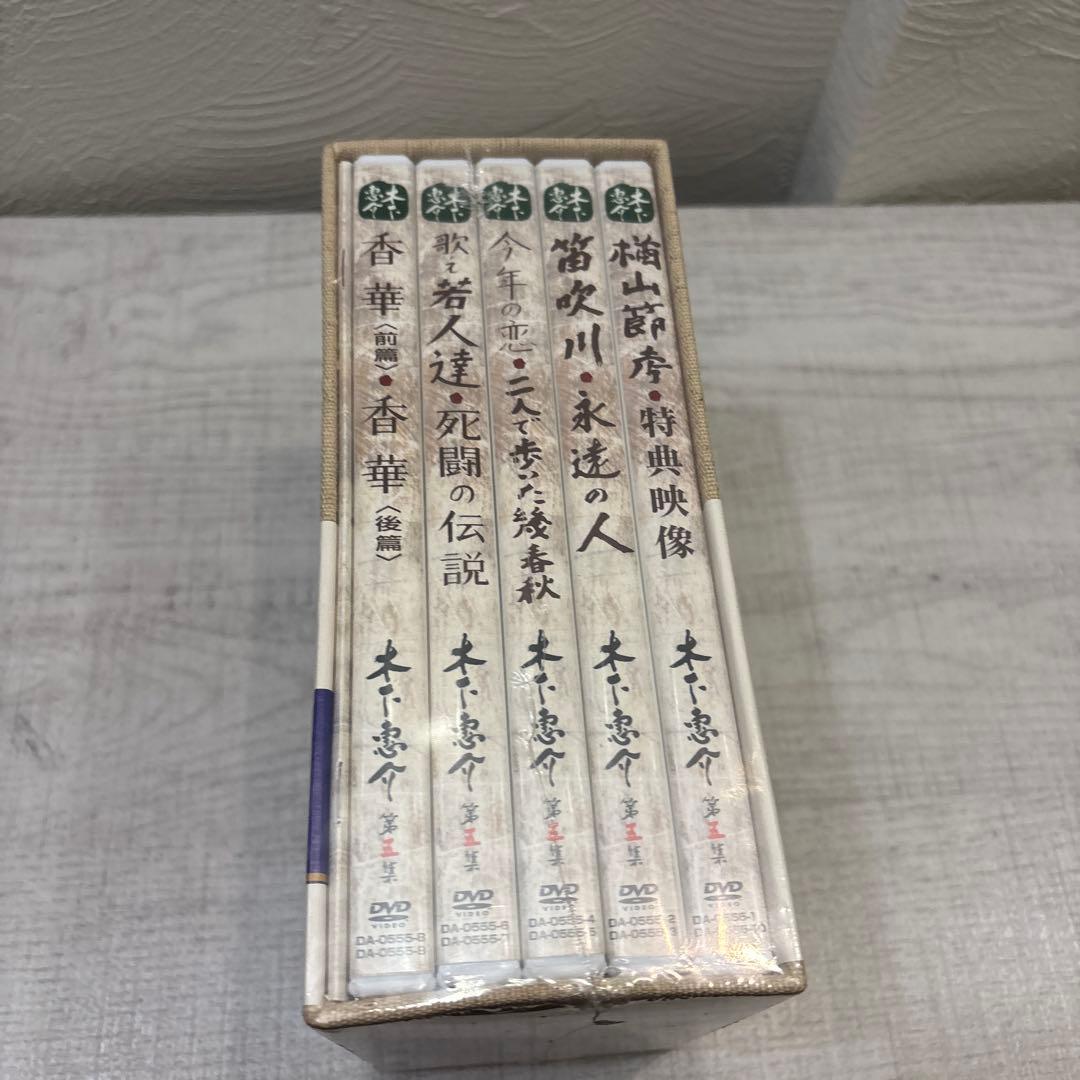 木下惠介
楢山節考・特典映像
木下惠介
第五集
DVD
VIDEO
DA-0555-1
DA-0555-10
木下惠介
笛吹川・永遠の人
木下惠介
第五集
DVD
VIDEO
DA-0555-2
DA-0555-3
木下惠介
今年の恋・二人で歩いた幾春秋
木下惠介
第五集
DVD
VIDEO
DA-0555-4
DA-0555-5
木下惠介
歌え若人達・死闘の伝説
木下惠介
第五集
DVD
VIDEO
DA-0555-6
DA-0555-7
木下惠介
香華〈前篇〉・香華〈後篇〉
木下惠介
第五集
DVD
VIDEO
DA-0555-8
DA-0555-9